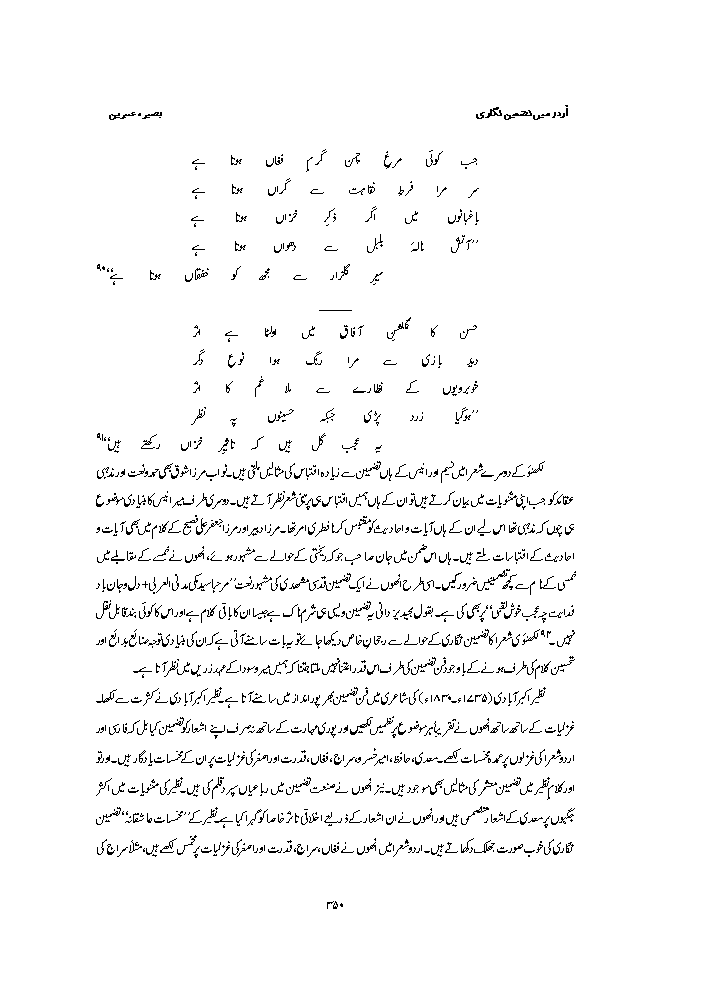 اُردو میں تضمین نگاری
بصیرہ عنبرین
جب کوئی مرغِ چمن گرمِ فغاں ہوتا ہے
سر مرا فرطِ نقاہت سے گراں ہوتا ہے
باغبانوں میں اگر ذکرِ خزاں ہوتا ہے
’’آتشِ نالۂ بلبل سے دھواں ہوتا ہے
سیرِ گلزار سے مجھ کو خفقاں ہوتا ہے‘‘۹۰
حسن کا گلشنِ آفاق میں اولٹا ہے اثر
دید بازی سے مرا رنگ ہوا نوعِ دگر
خوبرویوں کے نظارے سے ملا غم کا اثر
’’ہوگیا زرد پڑی جبکہ حسینوں پہ نظر
یہ عجب گل ہیں کہ تاثیرِ خزاں رکھتے ہیں‘‘۹۱
لکھنؤ کے دوسرے شعرا میں نسیم اور انیس کے ہاں تضمین سے زیادہ اقتباس کی مثالیں ملتی ہیں۔ نواب مرزا شوق بھی حمد و نعت اور مذہبی
عقائد کو جب اپنی مثنویات میں بیان کرتے ہیں تو ان کے ہاں ہمیں اقتباس ہی پر مبنی شعر نظر آتے ہیں۔ دوسری طرف میر انیس کا بنیادی موضوع
ہی چوں کہ مذہبی تھا اس لیے ان کے ہاں آیات و احادیث کو مقتبس کرنا فطری امر تھا۔ مرزا دبیر اور مرزا جعفر علی فصیح کے کلام میں بھی آیات و
احادیث کے اقتباسات ملتے ہیں۔ ہاں اس ضمن میں جان صاحب جو کہ ریختی کے حوالے سے مشہور ہوئے، انھوں نے خمسے کے مقابلے میں
خمسی کے نام سے کچھ تضمینیں ضرور کیں۔ اسی طرح انھوں نے ایک تضمین قدسی مشہدی کی مشہور نعت ’’مرحبا سید مکی مدنی العربی + دل و جان باد
فدایت چہ عجب خوش لقبی‘‘ پر بھی کی ہے۔ بقول مجید یزدانی یہ تضمین ویسی ہی شرم ناک ہے جیسا ان کا باقی کلام ہے اور اس کا کوئی بند قابلِ نقل
نہیں۔۹۲ لکھنوی شعرا کا تضمین نگاری کے حوالے سے رجحانِ خاص دیکھا جائے تو یہ بات سامنے آتی ہے کہ ان کی بنیادی توجہ صنائع بدائع اور
تحسینِ کلام کی طرف ہونے کے باوجود فنِ تضمین کی طرف اس قدر اعتنا نہیں ملتا جتنا کہ ہمیں میر و سودا کے عہدِ زریں میں نظر آتا ہے۔
نظیر اکبر آبادی (۱۷۳۵ء۔۱۸۳۰ء) کی شاعری میں فنِ تضمین بھرپور انداز میں سامنے آتا ہے۔ نظیر اکبر آبادی نے کثرت سے لکھا۔
غزلیات کے ساتھ ساتھ انھوں نے تقریباً ہر موضوع پر نظمیں لکھیں اور پوری مہارت کے ساتھ نہ صرف اپنے اشعار کو تضمین کیا بل کہ فارسی اور
اردو شعرا کی غزلوں پر عمدہ مخمسات لکھے۔ سعدی، حافظ، امیر خسرو، سراج، فغاں، قدرت اور اصغر کی غزلیات پر ان کے مخمسات یادگار ہیں۔ اور تو
اور کلامِ نظیر میں تضمین معشر کی مثالیں بھی موجود ہیں۔ نیز انھوں نے صنعتِ تضمین میں رباعیاں سپردِ قلم کی ہیں۔ نظیر کی مثنویات میں اکثر
جگہوں پر سعدی کے اشعار متضمن ہیں اور انھوں نے ان اشعار کے ذریعے اخلاقی تاثر خاصا گہرا کیا ہے۔ نظیر کے ’’مخمسات عاشقانہ‘‘ تضمین
نگاری کی خوب صورت جھلک دکھاتے ہیں۔ اردو شعرا میں انھوں نے فغاں، سراج، قدرت اور اصغر کی غزلیات پر مخمس لکھے ہیں، مثلاً سراج کی
۳۵۰